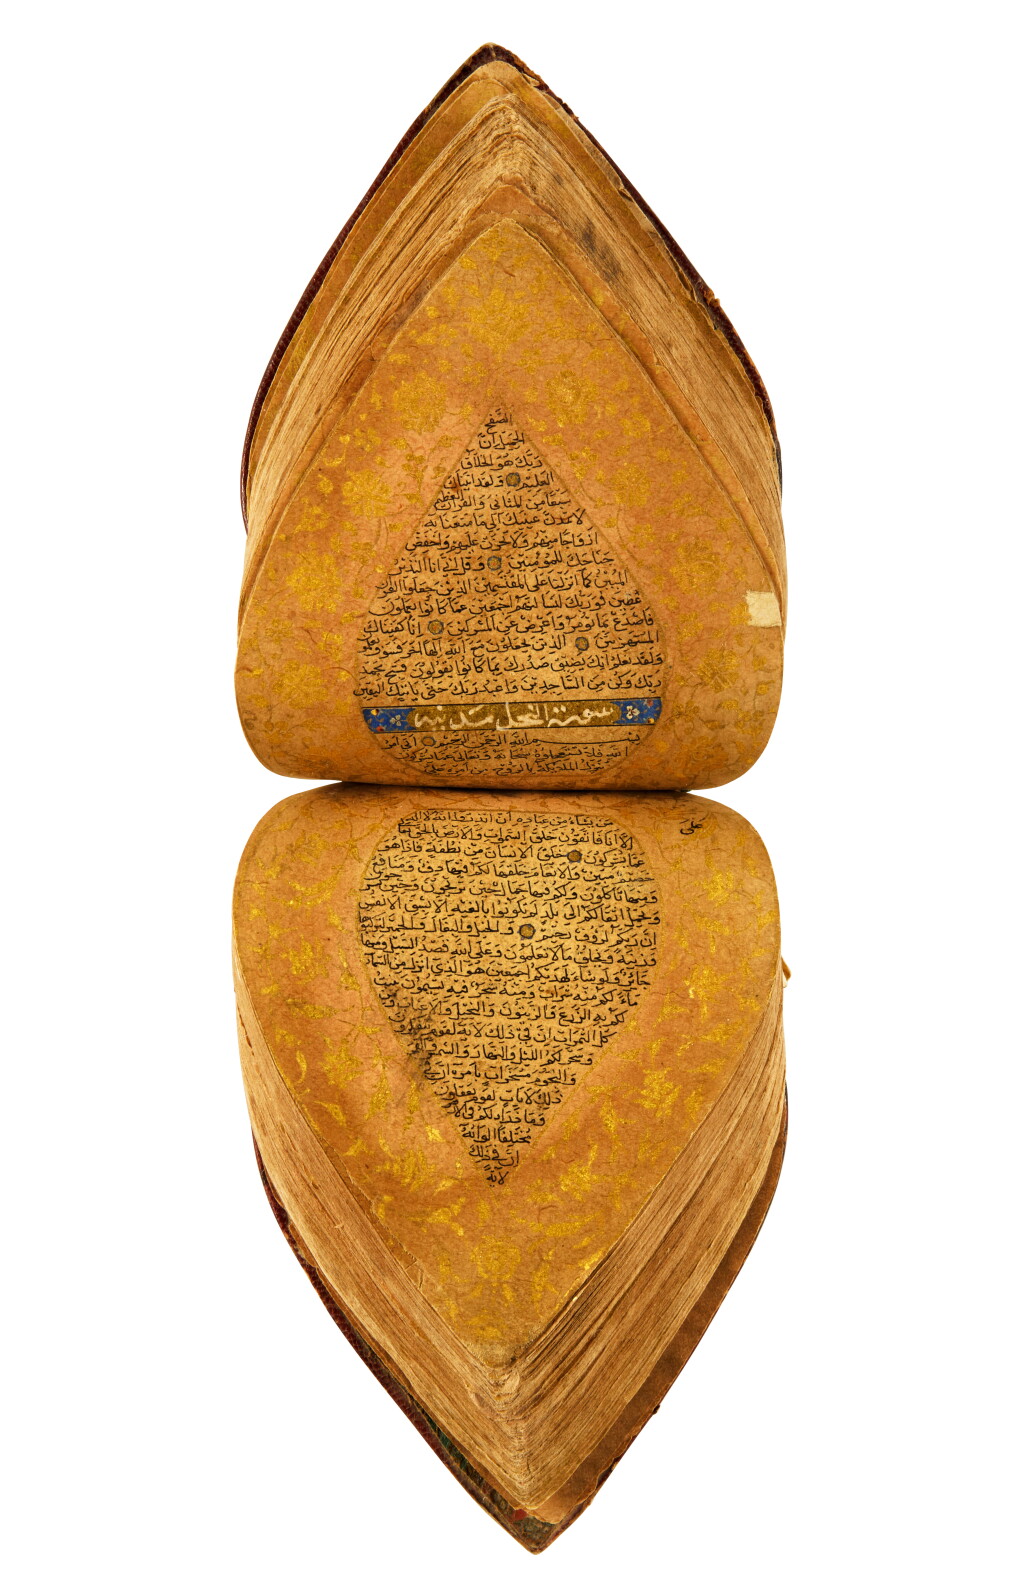 الصفح
الجميل ان
ربك هو الخلاق
العليم ولقد اتيناك
سبعا من المثاني والقران العظيم
لا تمدن عينيك الى ما متعنا به
ازواجا منهم ولا تحزن عليهم واخفض
جناحك للمؤمنين وقل اني انا النذير
المبين كما انزلنا على المقتسمين الذين جعلوا القران
عضين فوربك لنسالنهم اجمعين عما كانوا يعملون
فاصدع بما تؤمر واعرض عن المشركين انا كفيناك
المستهزئين الذين يجعلون مع الله الها اخر فسوف يعلمون
ولقد نعلم انك يضيق صدرك بما كانوا يقولون فسبح بحمد
ربك وكن من الساجدين واعبد ربك حتى ياتيك اليقين
سورة النحل مدنية
بسم الله الرحمن الرحيم اتى امر
الله فلا تستعجلوه سبحانه وتعالى عما يشركون
ينزل الملائكة بالروح من امره على
من يشاء من عباده ان انذروا انه لا اله
على
الا انا فاتقون خلق السموات والارض بالحق تعالى
عما يشركون خلق الانسان من نطفة فاذا هو
خصيم مبين والانعام خلقها لكم فيها دفء ومنافع
ومنها تاكلون ولكم فيها جمال حين تريحون وحين تسرحون
وتحمل اثقالكم الى بلد لم تكونوا بالغيه الا بشق الانفس
ان ربكم لرؤف رحيم والخيل والبغال والحمير لتركبوها
وزينة ويخلق ما لا تعلمون وعلى الله قصد السبيل ومنها
جائر ولو شاء لهديكم اجمعين هو الذي انزل من السماء
ماء لكم منه شراب ومنه شجر فيه تسيمون ينبت
لكم به الزرع والزيتون والنخيل والاعناب ومن
كل الثمرات ان في ذلك لاية لقوم يتفكرون
وسخر لكم الليل والنهار والشمس والقمر
والنجوم مسخرات بامره ان في
ذلك لايات لقوم يعقلون
وما ذرا لكم في الارض
مختلفا الوانه
ان في ذلك
لاية